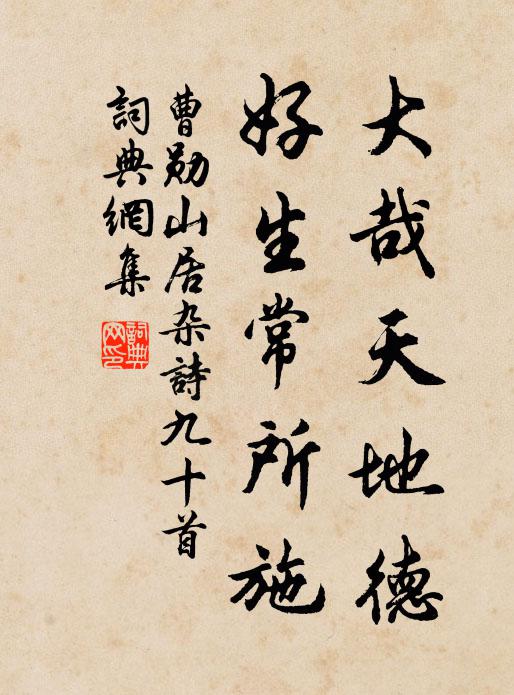 大哉天地德
好生常所施
曹勛山居杂詩九十首
詞典網集
詞典網印